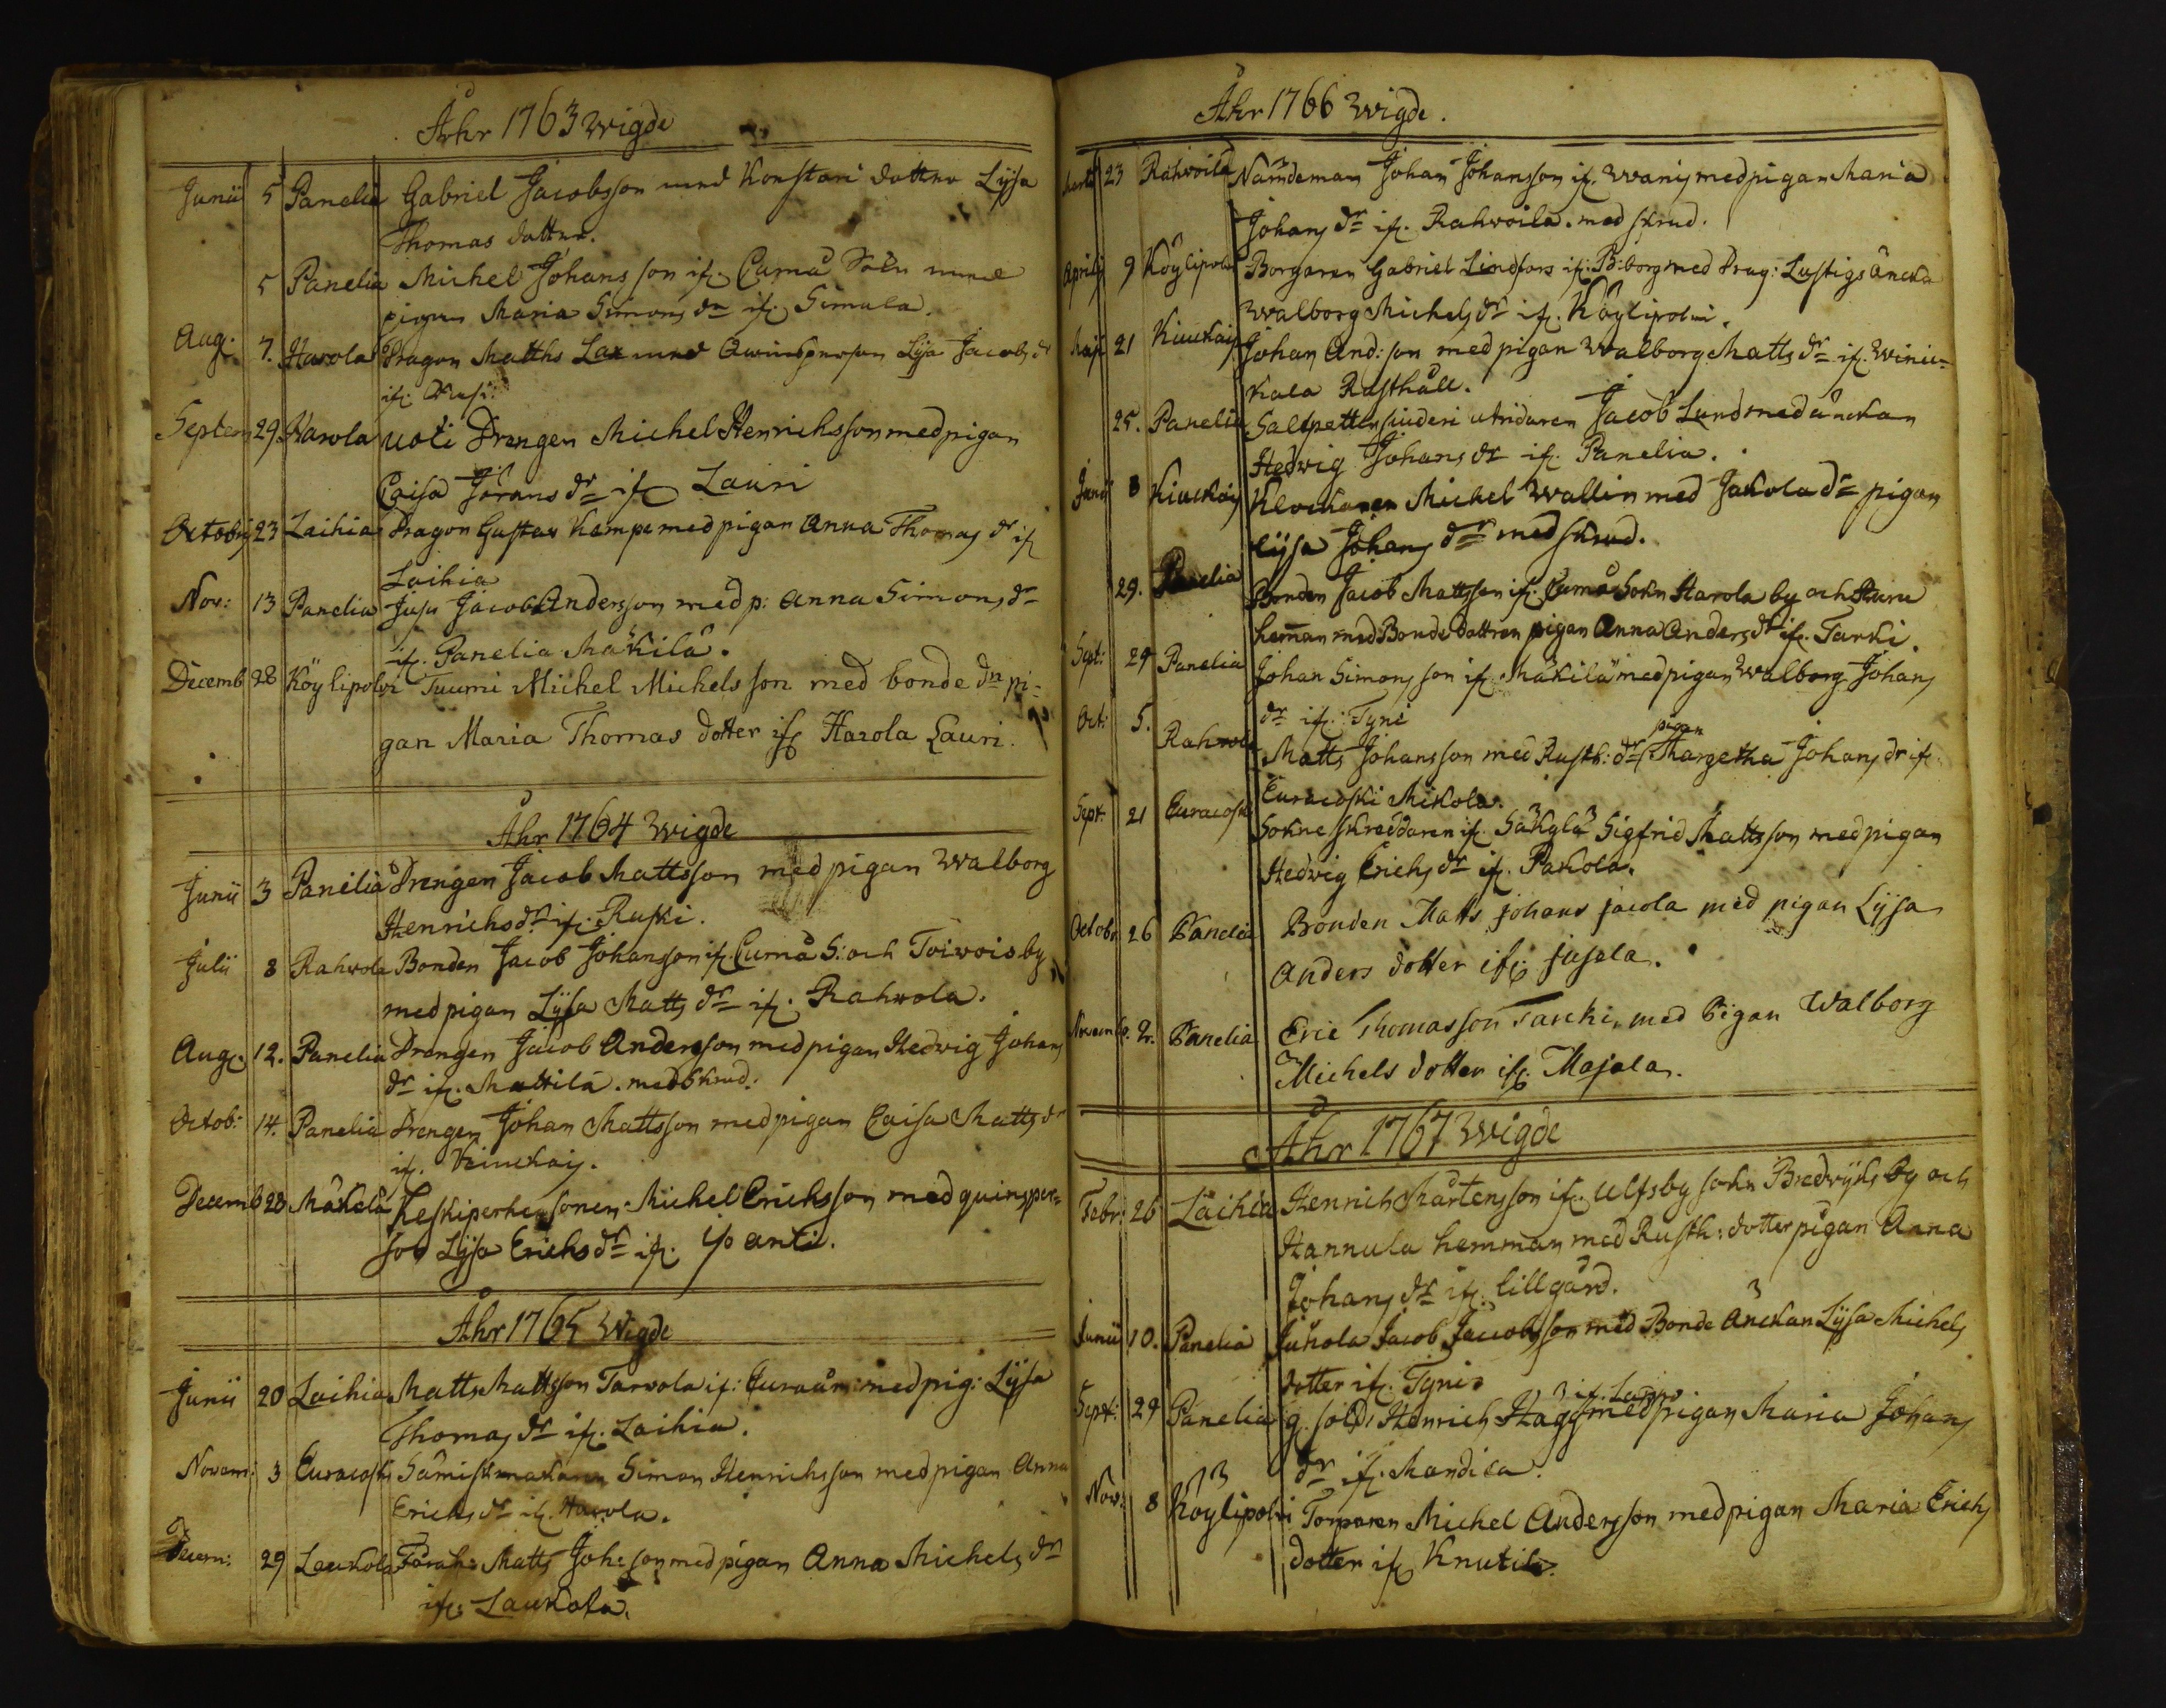 Åhr 1763 wigde
Junii 5 Panelia Gabriel Jacobsson med Konstari dotter Lijsa
Thomas dotter.
5 Panelia Michel Johans son if. Cumå Sokn med
pigan Maria Simons dr if. Simula.
Aug. 7. Harola Dragon Matths Lax med Lijsa Jacobs dr
if.
Septem 29. Harola uoti Drengen Michel Henrichsson med pigan
Caisa Jörans dr if Lauri
Octobr 23 Laihia Dragon Gustav Kampe med pigan Anna Thomas dr if
Laihia
Nov: 13 Panelia Juju Jacob Andersson med p: Anna Simons dr
if. Panelia Mäkilä.
Decemb 28 Köylipolvi Tuumi Michel Michels son med bonde dn pi-
gan Maria Thomas dotter if Harola Lauri.
Åhr 1764 wigde
Junii 3 Panelia Drengen Jacob Mattsson med pigan Walborg
Henrichsdr if. Ruski.
Julii 8 Rahvola Bonden Jacob Johansson if. Cumå S: och Toivois by
med pigan Lijsa Matts dr if. Rahvola.
Aug. 12. Panelia Drengen Jacob Andersson med pigan Hedvig Johans
dr if. Mattila. med Skrud.
Octob: 14. Panelia Drengen Johan Mattsson med pigan Caisa Matts dr
if.
Decemb 28 Mäkelä Keskiperhe sonen Michel Erichsson med quinsper-
son Lijsa Erichsdr if. yo anti.
Åhr 1765 Wigde
Junii 20 Laihia Matts Mattsson Tarvola if: Euraåm: med pig: Lijsa
Thomas dr if. Laihia.
Novem: 3 Euracoski Sämiskmakaren Simon Henrichsson med pigan Anna
Erichs dr if. Harola.
Decem: 29 Laukola Matts Joh: son med pigan Anna Michels dr
if: Laukola.
Åhr 1766 wigde.
Martii 23 Rahvoila Nämdeman Johan Johansson if. Wanis med pigan Maria
Johans dr if. Rahvoila. med skrud.
Aprilis 9 Köylipolvi Borgaren Gabriel Lindfors if: B:borg med Drag: Lustigs änckia
Walborg Michels dr if. Köylipolvi.
Maji 21 Kiuckais Johan And: son med pigan Walborg Matts dr if. Winic-
kala Rusthåll.
25. Panelia Saltpettersiuderi utridaren Jacob Lund med änckan
Hedvig Johans dr if. Panelia.
Junii 8 Kiuckais Klockaren Michel Wallin med Jakola dr pigan
Lijsa Johans dr med skrud.
29. Panelia Bonden Jacob Mattsson if. Cumå Sokn Harola by och
hemman med Bonde dottren pigan Anna Anders dr if. Tarki.
Sept: 29 Panelia Johan Simons son if. Mäkilä med pigan Walborg Johans
dr if. Tyni
Oct: 5. Rahvola Matts Johansson med Rusth: dr pigan Margetha Johans dr if.
Euracoski Mikola.
Sept: 21 Euracoski Sokne skreddaren if. Säkylä Sigfrid Mattsson med pigan
Hedvig Erichs dr if. Pakola.
Octobr 26 Panelia Bonden Matts johans jacola med pigan Lijsa
Anders dotter if jusala.
Novemb. 2. Panelia Eric Thomasson Tarcki, med Pigan Walborg
Michels dotter if Majala.
Åhr 1767 wigde
Febr: 26 Laihia Henrich Mårtensson if. Ulfsby sokn Bredvijks by och
Hannula hemman med Rusth: dotter pigan Anna
Johans dr if. lillgård.
Junii 10. Panelia Juhola Jacob Jacobs son med Bonde Änckan Lijsa Michels
dotter if. Tyni
Sept: 29 Panelia g. sold: Henrich Hagg if. Lappo. med pigan Maria Johans
dr if. Mandila.
Nov: 8 Köylipolvi Torparen Michel Andersson med pigan Maria Erichs
dotter if Knutila.